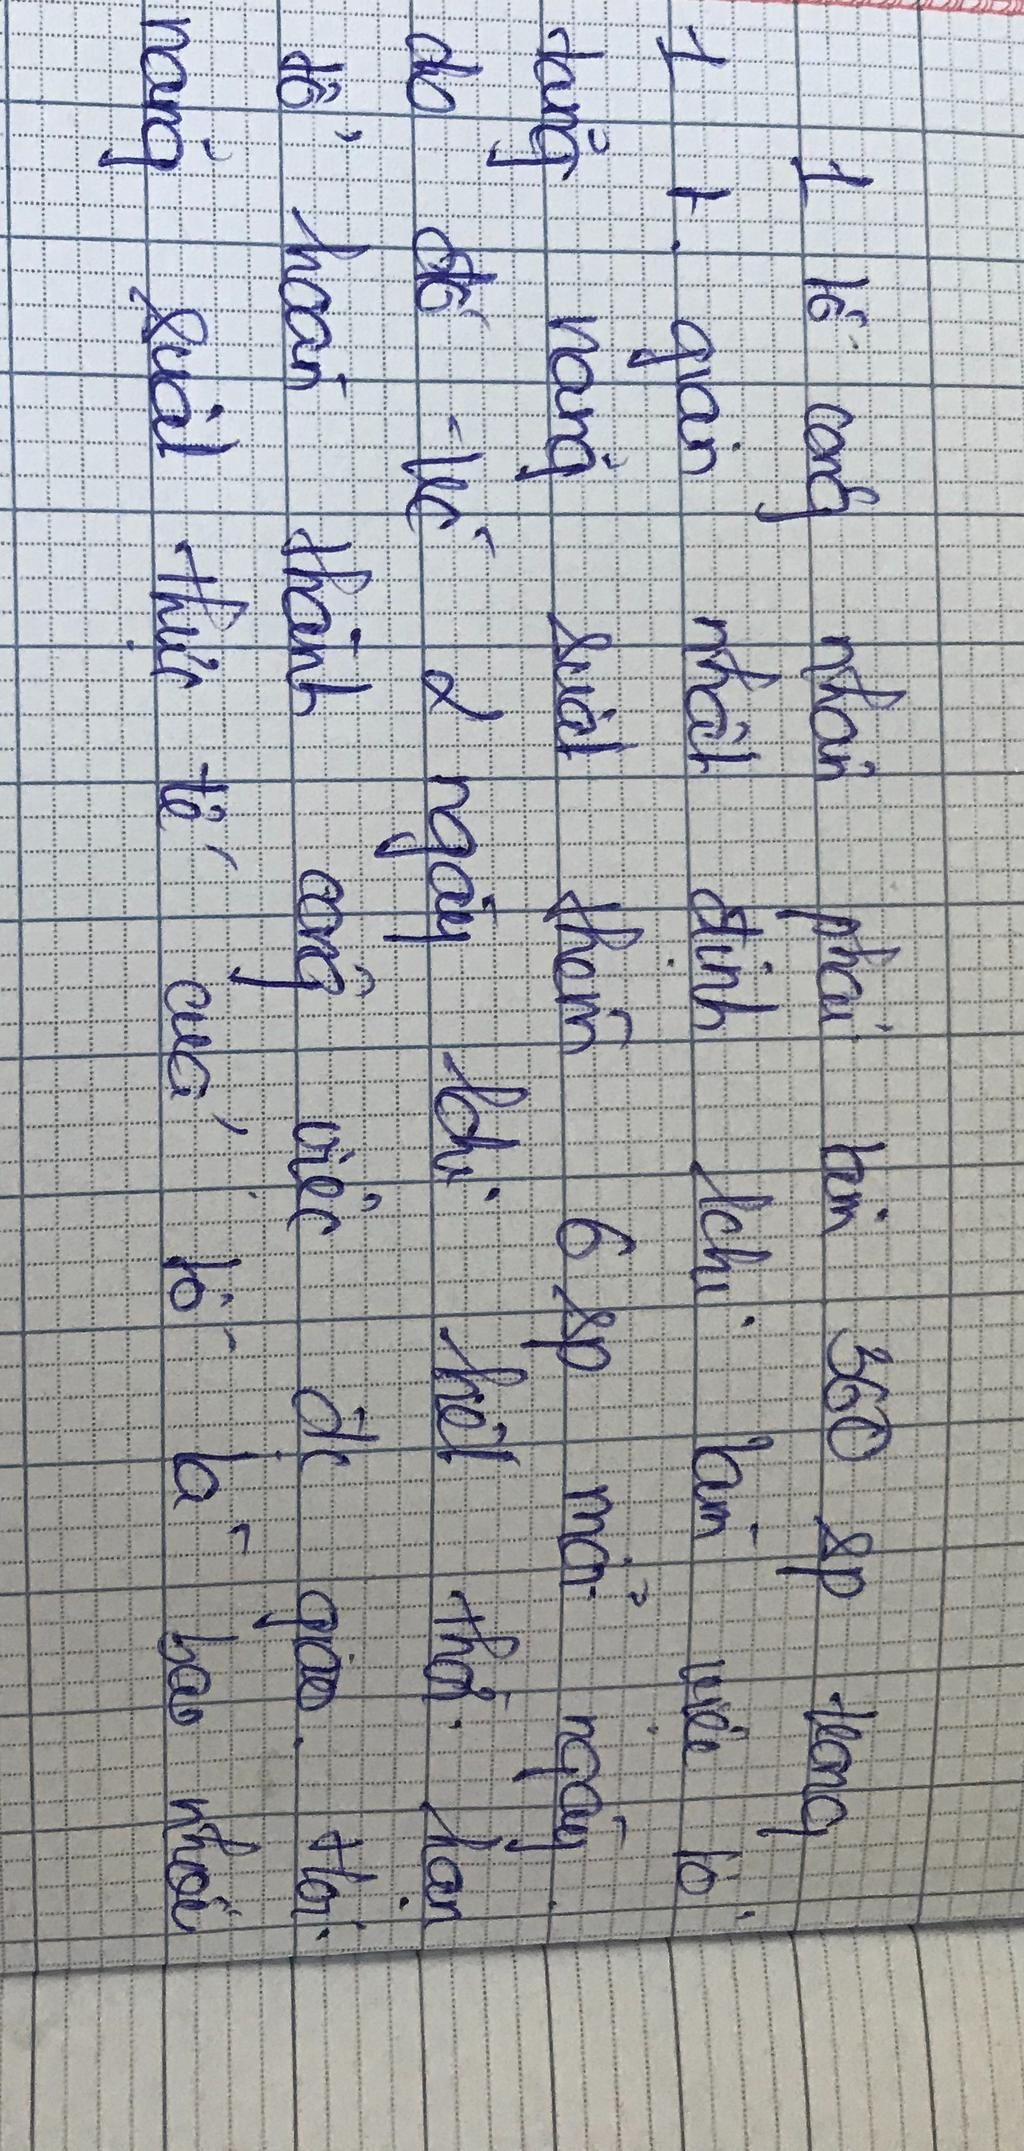 1 tổ công nhân phải làm 360 sp trong
1 t. gian nhất định. khi làm việc tổ
tăng năng suất thêm 6 sp mỗi ngày.
do đó trc 2 ngày khi hết thời hạn
tổ hoàn thành công việc đc giao. thì
năng suất thực tế của tổ là bao nhiêu